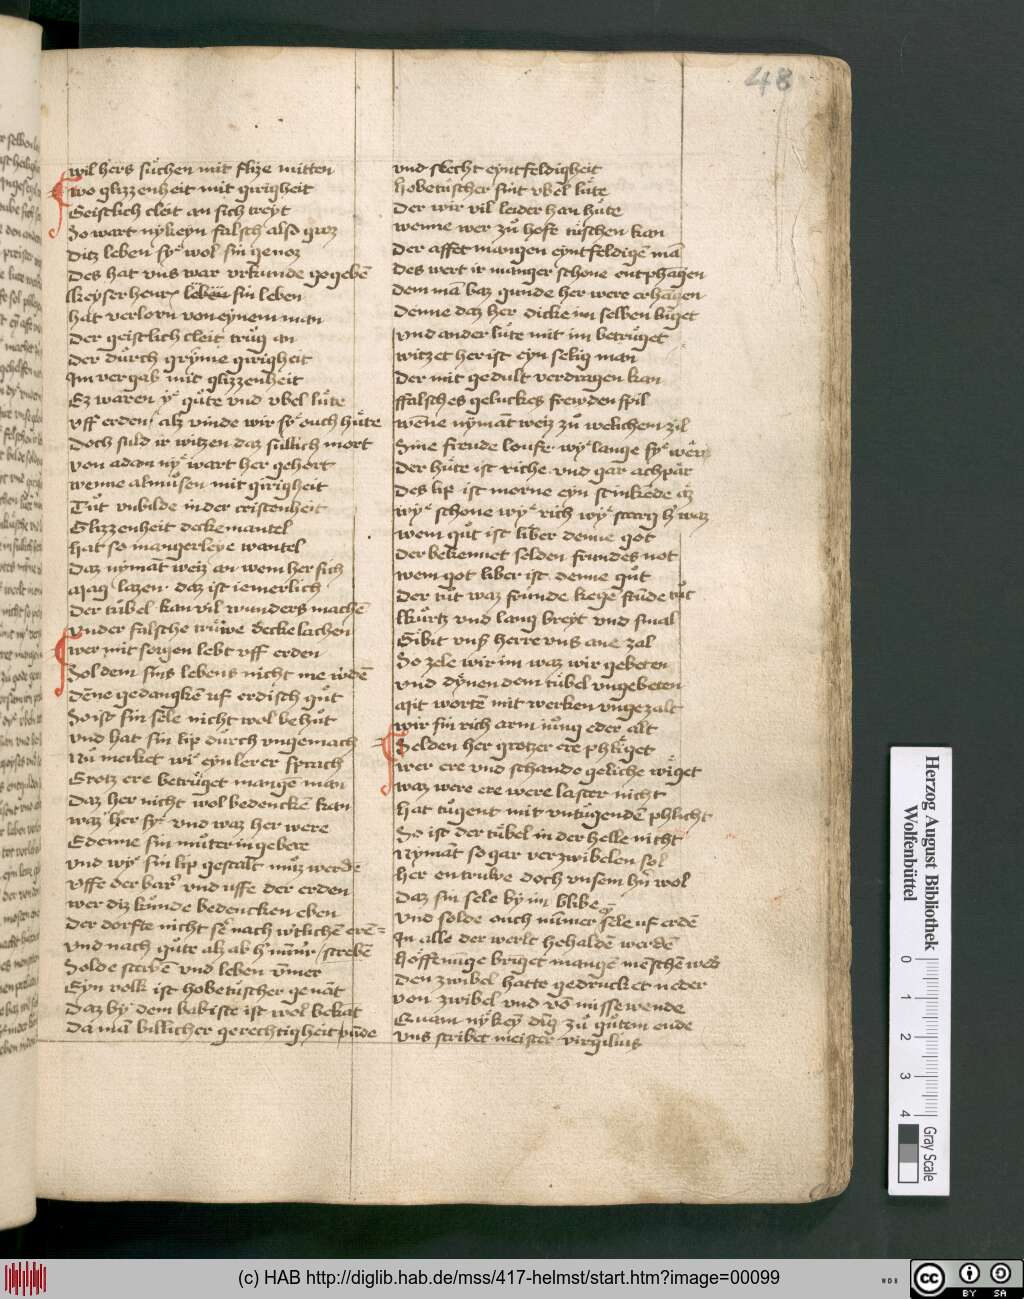 48
wil hers suͦchen mit flize mitten
wo glizzenheit mit girigheit
Geistlich cleit an sich treyt
So wart nykeyn falsch also groz
Ditz leben sy wol sin genoz
Des hat vns war vrkunde gegebē
Keyser henr leben sin leben
hat verlorn von eynem man
Der geistlich cleit truͦg an
Der duͦrch grymme girigheit
Im vergab mit glizzenheit
Ez waren y guͦte vnd vbel luͦte
Vff erden alz vinde wir sy ouch huͦte
Doch suld ir witzen daz sullich mort
von adam ny wart her gehort
wenne almuͦsen mit girigheit
Tuͦt vnbilde in der cristenheit
Glizzenheit deckemantel
hat so mangerleye wantel
Daz nymāt weiz an wem her sich
Mag lazen daz ist iemerlich
Der tuͦbel kan vil wunders machē
vnder falsche truͦwe deckelachen
wer mit sorgen lebt vff erden
Sol dem sins lebens nicht me wˢdē
dēne gedangkēn uf erdisch guͦt
So ist sin sele nicht wol behuͦt
vnd hat sin lip duͦrch vngemach
Nuͦ merket wi eyn lerer sprach
Grotz ere betruͦget mangē man
Daz her nicht wol bedenckē kan
waz her sy vnd waz her were
E denne sin muͦter in gebere
vnd wy sin lip gestalt muͦz werdē
vffe der bar vnd uffe der erden
wer diz kuͦnde bedencken eben
Der dorfte nicht se nach wˢtlichē erē
vnd nach guͦte alz ab hˢ nūmˢ strebē
Solde sterbē vnd leben vmer
Eyn volk ist hobetuͦscher genāt
Daz by dem babiste ist wol bekāt
Da mā billicher gerechtigheit pūde
vnd slecht eyntfeldigheit
Hobetuͦscher sint vbel luͦte
Der wir vil leider han huͦte
wenne wer zuͦ hofe tuͦschen kan
Der affet mangen eyntfeldigē mā
Des wert ir manger schone entphagen
dem mā baz gunde her were erhagen
Denne daz her dicke im selben luͦget
vnd ander luͦte mit im betruͦget
witzet her ist eyn selig man
Der mit gedult verdragen kan
Falsches geluckes frewden spil
wēne nymāt weiz zuͦ welichem zil
Sine freude loufe wy lange sy wer
Der huͦte ist riche vnd gar achpār
Des lip ist morne eyn stinkēde
wy schone wy rich wy starg hˢ waz
wem guͦt ist liber denne got
der bekennet selden frundes not
wem got liber ist denne guͦt
Der tuͦt waz frunde kegē frūde tuͦt
Kuͦrtz vnd lang breyt vnd smal
Gibit vnser herre vns ane zal
So zele wir im waz wir gebeten
vnd dynen dem tuͦbel vngebeten
Mit wortē mit werken vngezalt
wir sin rich arm iuͦng eder alt
Selden her grotzer ere phliget
wer ere vnd schande geliche wiget
waz were ere were laster nicht
hat tuͦgent mit vntuͦgendē phlicht
So ist der tuͦbel in der helle nicht
Nymāt so gar verzwibelen sol
her entruwe doch vnsem hrˢn wol
Daz sin sele by im blibe
vnd solde ouch nūmer sele uf erdē
In alle der werlt behaldē werdē
Hoffenūge briget mangē mēschē wed
Den zwibel hatte gedrucket neder
von zwibel vnd vō missewende
Quam nykey dīg zuͦ guͦtem ende
vns scribet meister virgilius
Herzog August Bibliothek
Wolfenbüttel
0 1 2 3 4
Gray Scale
(c) HAB http://diglib.hab.de/mss/417-helmst/start.htm?image=00099
WDB
cc BY SA